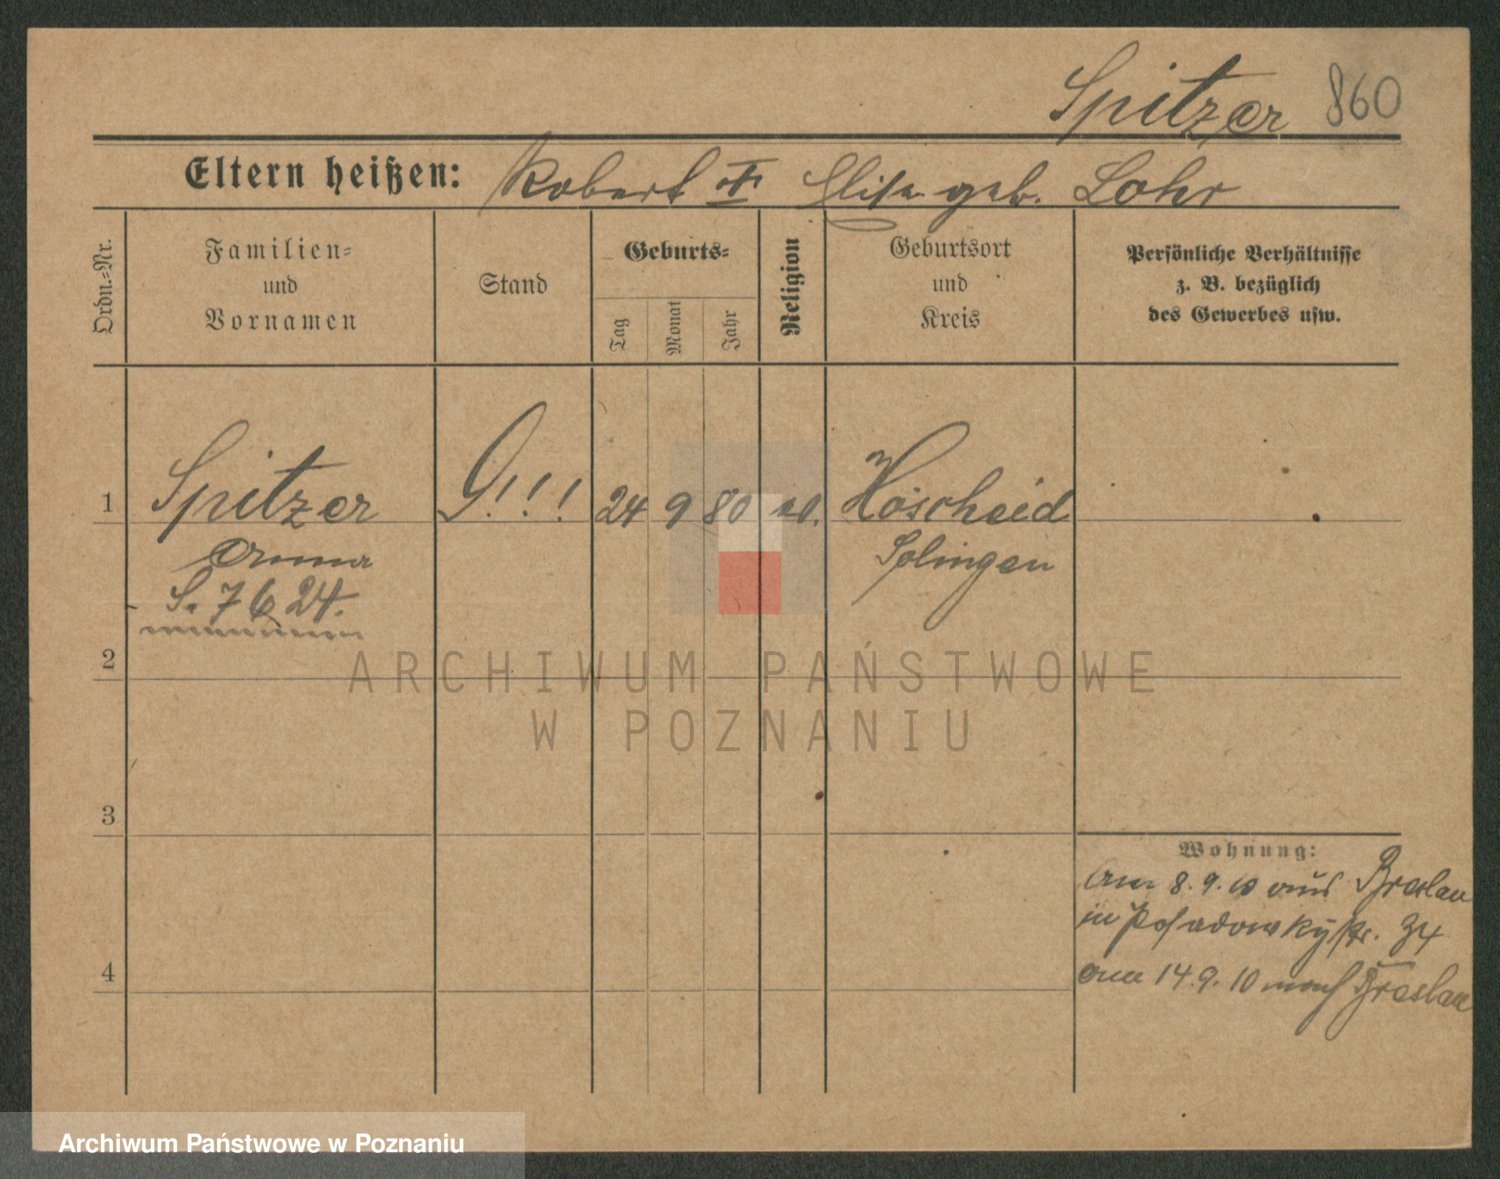 Spitzer 860
Eltern heißen: Robert Elise geb. Lohr
Ordn.-Nr.
Familien-
und
Vornamen
Stand
Geburts-
Tag
Monat
Jahr
Religion
Geburtsort
und
Kreis
Persönliche Verhältnisse
z. B. bezüglich
des Gewerbes usw.
1 Spitzer !!! 24 9 80 Höscheid
Anna Solingen
S. 7 6 24.
2
3
4
Wohnung:
am 8.9.10 aus Breslau
in Posadowskystr. 34
am 14.9.10 nach Breslau
ARCHIWUM PAŃSTWOWE
W POZNANIU
Archiwum Państwowe w Poznaniu